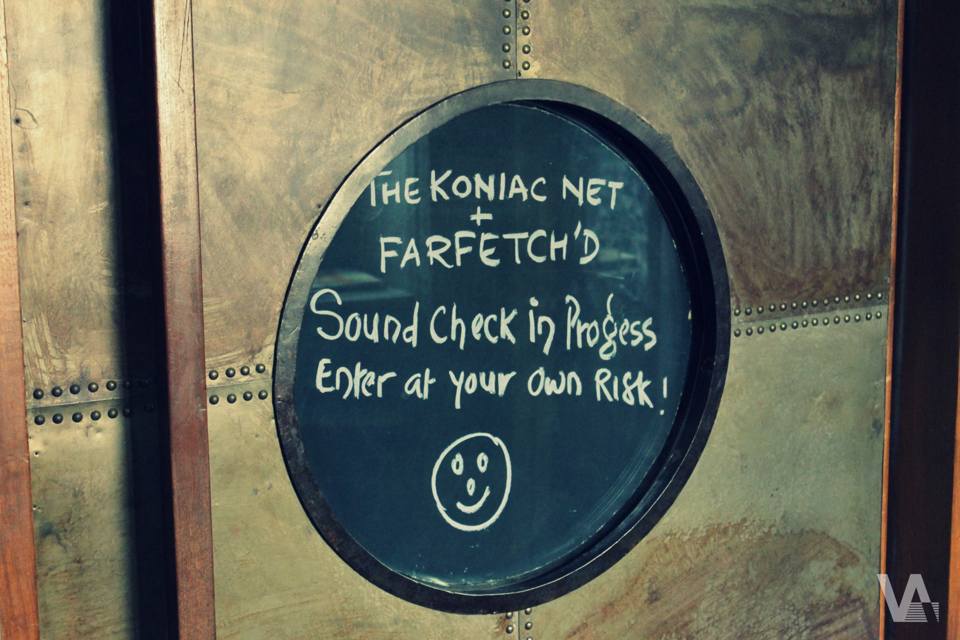 THE KONIAC NET
+
FARFETCH'D
Sound Check in Progess
Enter at your own Risk!
VA